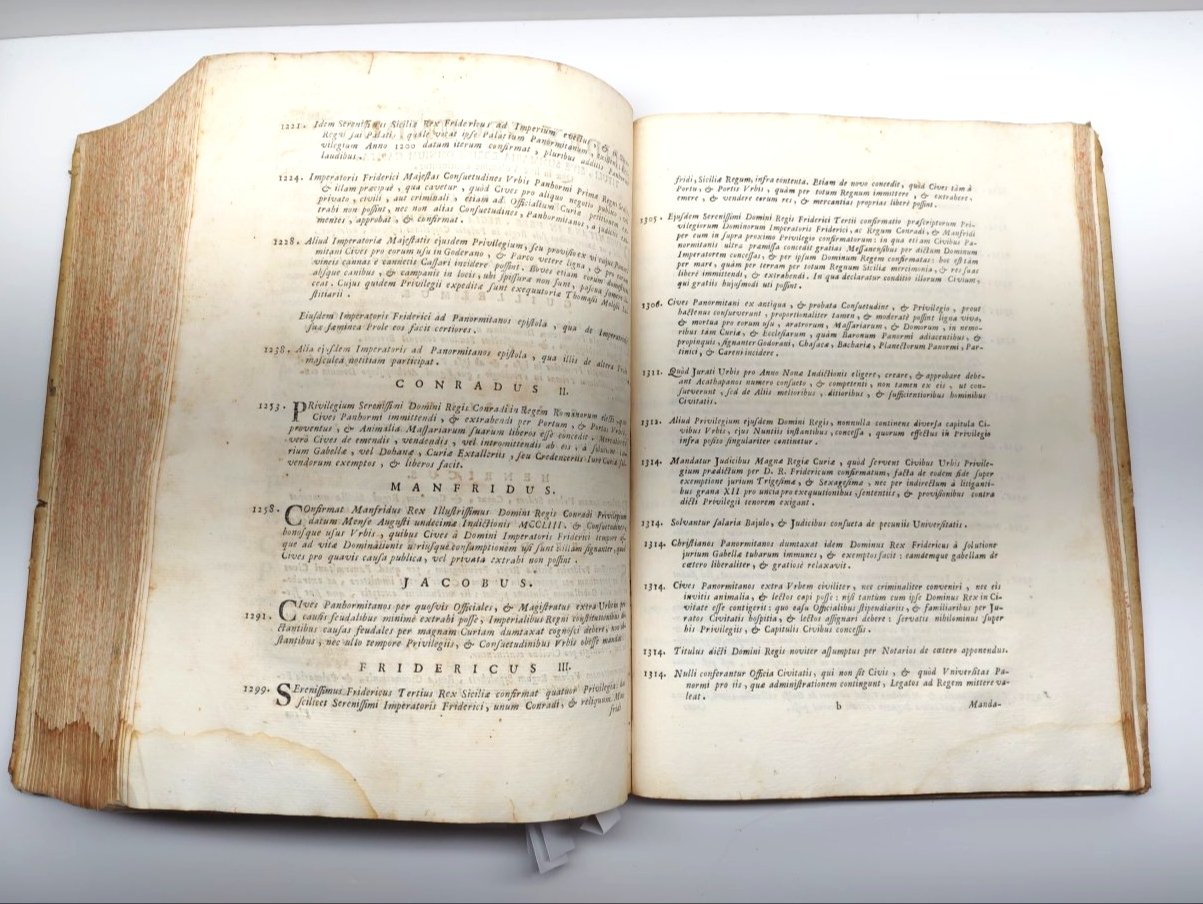 1221. Idem Serenissimus Siciliæ Rex Fridericus ad Imperium evectus, &
Regni sui Palatii, quale vocat ipse Palatium Panormitanum,
vilegium Anno 1200 datum iterum confirmat, pluribus additis
laudibus.
1224. Imperatoris Friderici Majestas Consuetudines Vrbis Panhormi Primæ
& illam præcipuè, qua cavetur, quòd Cives pro aliquo negotio publico,
privato, civili, aut criminali, etiam ad Officialium Curiæ petitionem,
trahi non possint, nec non alias Consuetudines, Panhormitanos, à judiciis
mentes, approbat, & confirmat.
1228. Aliud Imperatoriæ Majestatis ejusdem Privilegium, seu provisio ex vi cujus
mitani Cives pro eorum usu in Goderano, & Parco vetere ligna, & pro
vineis cannas è cannetis Cassari incidere possint. Boves etiam eorum
absque canibus, & campanis in locis, ubi spissura non sunt, pascua sumere
ceat. Cujus quidem Privilegii expeditæ sunt exequutoria Thomasii
stitiarii.
Ejusdem Imperatoris Friderici ad Panormitanos epistola, qua de
sua fæminea Prole eos facit certiores.
1238. Alia ejusdem Imperatoris ad Panormitanos epistola, qua illis de altera
masculea notitiam participat.
CONRADUS II.
1253. PRivilegium Serenissimi Domini Regis Conradi in Regem Romanorum electi,
Cives Panhormi immittendi, & extrabendi per Portum, & Portas Vrbis,
proventus, & Animalia Massariarum suarum liberos esse concedit.
verò Cives de emendis, vendendis, vel intromittendis ab eis, à solutione
rium Gabellæ, vel Dohanæ, Curiæ Extalleriis, seu Credenceriis
vendorum exemptos, & liberos facit.
MANFRIDUS.
1258. COnfirmat Manfridus Rex Illustrissimus Domini Regis Conradi Privilegium
datum Mense Augusti undecimæ Indictionis MCCLIII. & Consuetudines,
bonosque usus Vrbis, quibus Cives à Domini Imperatoris Friderici tempore
que ad vitæ Dominationis utriusque consumptionem usi sunt
Cives pro quavis causa publica, vel privata extrahi non possint.
JACOBUS.
1291. CIves Panhormitanos per quosvis Officiales, & Magistratus extra Urbem
causis feudalibus minimè extrahi posse, Imperialibus Regni constitutionibus
stantibus causas feudales per magnam Curiam dumtaxat cognosci debere, non
stantibus, nec ullo tempore Privilegiis, & Consuetudinibus Vrbis obesse
FRIDERICUS III.
1299. SErenissimus Fridericus Tertius Rex Siciliæ confirmat quatuor Privilegia:
scilicet Serenissimi Imperatoris Friderici, unum Conradi, & reliquum
fridi
fridi, Siciliæ Regum, infra contenta. Etiam de novo concedit, quòd Cives tàm à
Portu, & Portis Vrbis, quàm per totum Regnum immittere, & extrahere,
emere, & vendere eorum res, & mercantias proprias liberè possint.
1305. Ejusdem Serenissimi Domini Regis Friderici Tertii confirmatio præscriptorum Pri-
vilegiorum Dominorum Imperatoris Friderici, ac Regum Conradi, & Manfridi
per eum in supra proximo Privilegio confirmatorum: in qua etiam Civibus Pa-
normitanis ultra præmissa concedit gratias Messanensibus per dictum Dominum
Imperatorem concessas, & per ipsum Dominum Regem confirmatas: hoc est tàm
per mare, quàm per terram per totum Regnum Siciliæ mercimonia, & res suas
liberè immittendi, & extrahendi. In qua declaratur conditio illorum Civium,
qui gratiis hujusmodi uti possint.
1306. Cives Panormitani ex antiqua, & probata Consuetudine, & Privilegio, prout
hactenus consueverunt, proportionaliter tamen, & moderatè possint ligna viva,
& mortua pro eorum usu, aratrorum, Massariarum, & Domorum, in nemo-
ribus tàm Curiæ, & Ecclesiarum, quàm Baronum Panormi adjacentibus, &
propinquis, signanter Godorani, Chasacæ, Bachariæ, Planectorum Panormi, Par-
tinici, & Careni incidere.
1311. Quòd Jurati Urbis pro Anno Nonæ Indictionis eligere, creare, & approbare debe-
ant Acathapanos numero consueto, & competenti, non tamen ex eis, ut con-
sueverunt, sed de Aliis melioribus, ditioribus, & sufficientioribus hominibus
Civitatis.
1312. Aliud Privilegium ejusdem Domini Regis, nonnulla continens diversa capitula Ci-
vibus Vrbis, ejus Nuntiis instantibus, concessa, quorum effectus in Privilegio
infra posito singulariter continetur.
1314. Mandatur Judicibus Magnæ Regiæ Curiæ, quòd servent Civibus Urbis Privile-
gium prædictum per D. R. Fridericum confirmatum, facta de eodem fide super
exemptione jurium Trigesimæ, & Sexagesimæ, nec per indirectum à litiganti-
bus grana XII pro uncia pro exequutionibus sententiis, & provisionibus contra
dicti Privilegii tenorem exigant.
1314. Solvantur salaria Bajulo, & Judicibus consueta de pecuniis Universitatis.
1314. Christianos Panormitanos dumtaxat idem Dominus Rex Fridericus à solutione
jurium Gabellæ tubarum immunes, & exemptos facit: eamdemque gabellam de
cætero liberaliter, & gratiosè relaxavit.
1314. Cives Panormitanos extra Vrbem civiliter, nec criminaliter conveniri, nec eis
invitis animalia, & lectos capi posse: nisi tantum cum ipse Dominus Rex in Ci-
vitate esse contigerit: quo casu Officialibus stipendiariis, & familiaribus per Ju-
ratos Civitatis hospitia, & lectos assignari debere: servatis nihilominus super
his Privilegiis, & Capitulis Civibus concessis.
1314. Titulus dicti Domini Regis noviter assumptus per Notarios de cætero apponendus.
1314. Nulli conferantur Officia Civitatis, qui non sit Civis, & quòd Vniversitas Pa-
normi pro iis, quæ administrationem contingunt, Legatos ad Regem mittere va-
leat.
b Manda-